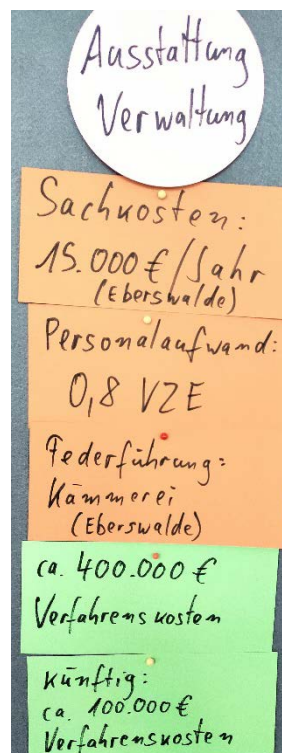 Ausstattung
Verwaltung
Sachkosten:
15.000 €/Jahr
(Eberswalde)
Personalaufwand:
0,8 VZE
Federführung:
Kämmerei
(Eberswalde)
ca. 400.000 €
Verfahrenskosten
künftig:
ca. 100.000 €
Verfahrenskosten